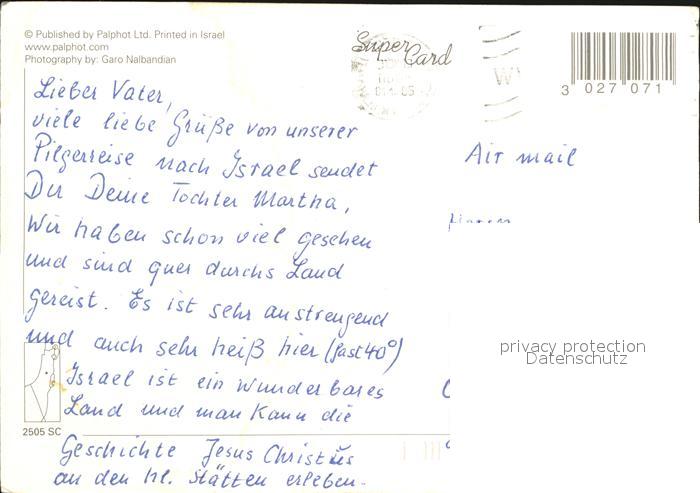 © Published by Palphot Ltd. Printed in Israel
www.palphot.com
Photography by: Garo Nalbandian
Super Card
3 027 071
Lieber Vater,
viele liebe Grüße von unserer
Pilgerreise nach Israel sendet
Dir Deine Tochter Martha,
Wir haben schon viel gesehen
und sind quer durchs Land
gereist. Es ist sehr anstrengend
und auch sehr heiß hier (fast 40°)
Israel ist ein wunderbares
Land und man kann die
Geschichte Jesus Christus
an den hl. Stätten erleben.
2505 SC
Air mail
privacy protection
Datenschutz